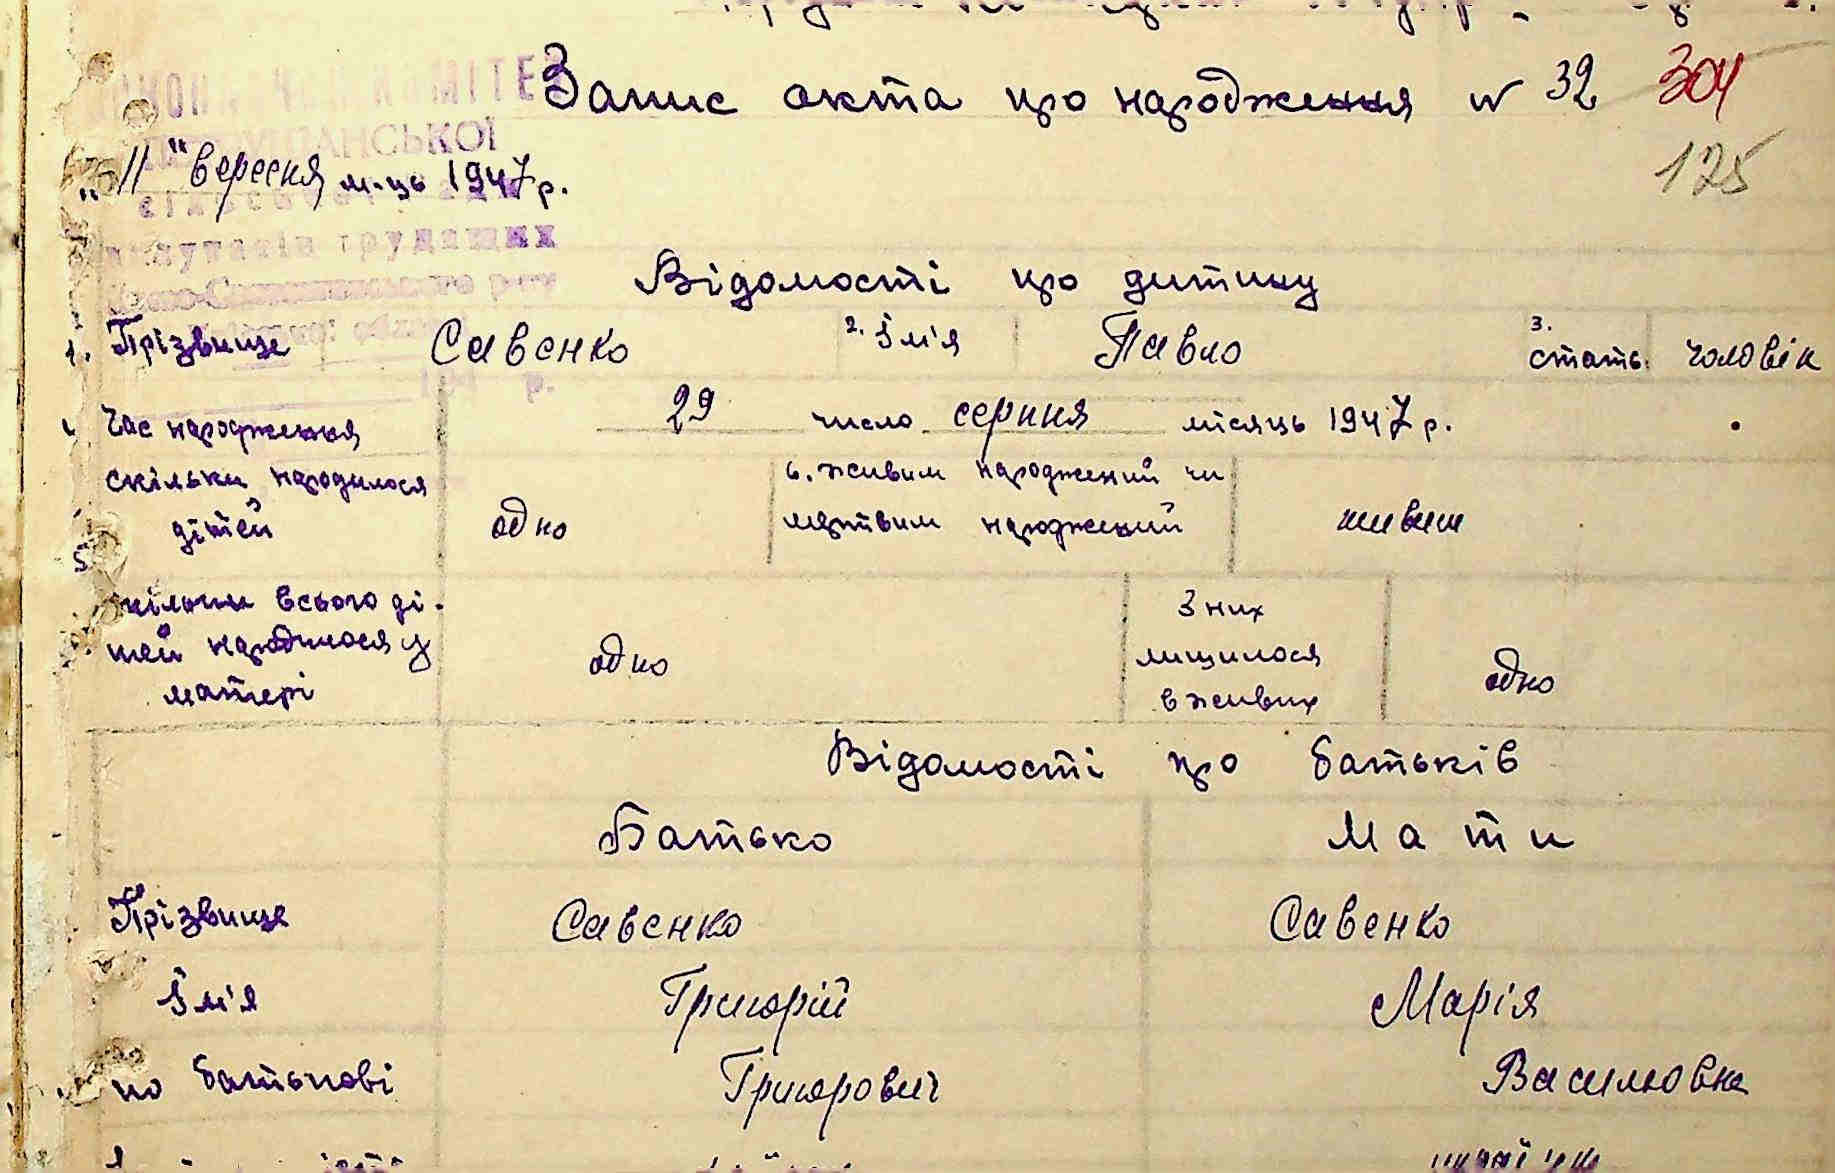 Запис акта про народження № 32 304
125
"11" вересня м-ць 1947 р.
депутатів трудящих
Відомості про дитину
1. Прізвище Савенко 2. Ім'я Павло 3. стать. чоловік
Час народження 29 число серпня місяць 1947 р.
скільки народилося дітей одно 6. живим народжений чи мертвим народжений живим
скільки всього дітей народилося у матері одно З них лишилося в живих одно
Відомості про батьків
Батько Мати
Прізвище Савенко Савенко
Ім'я Григорій Марія
по батькові Григорович Василювна